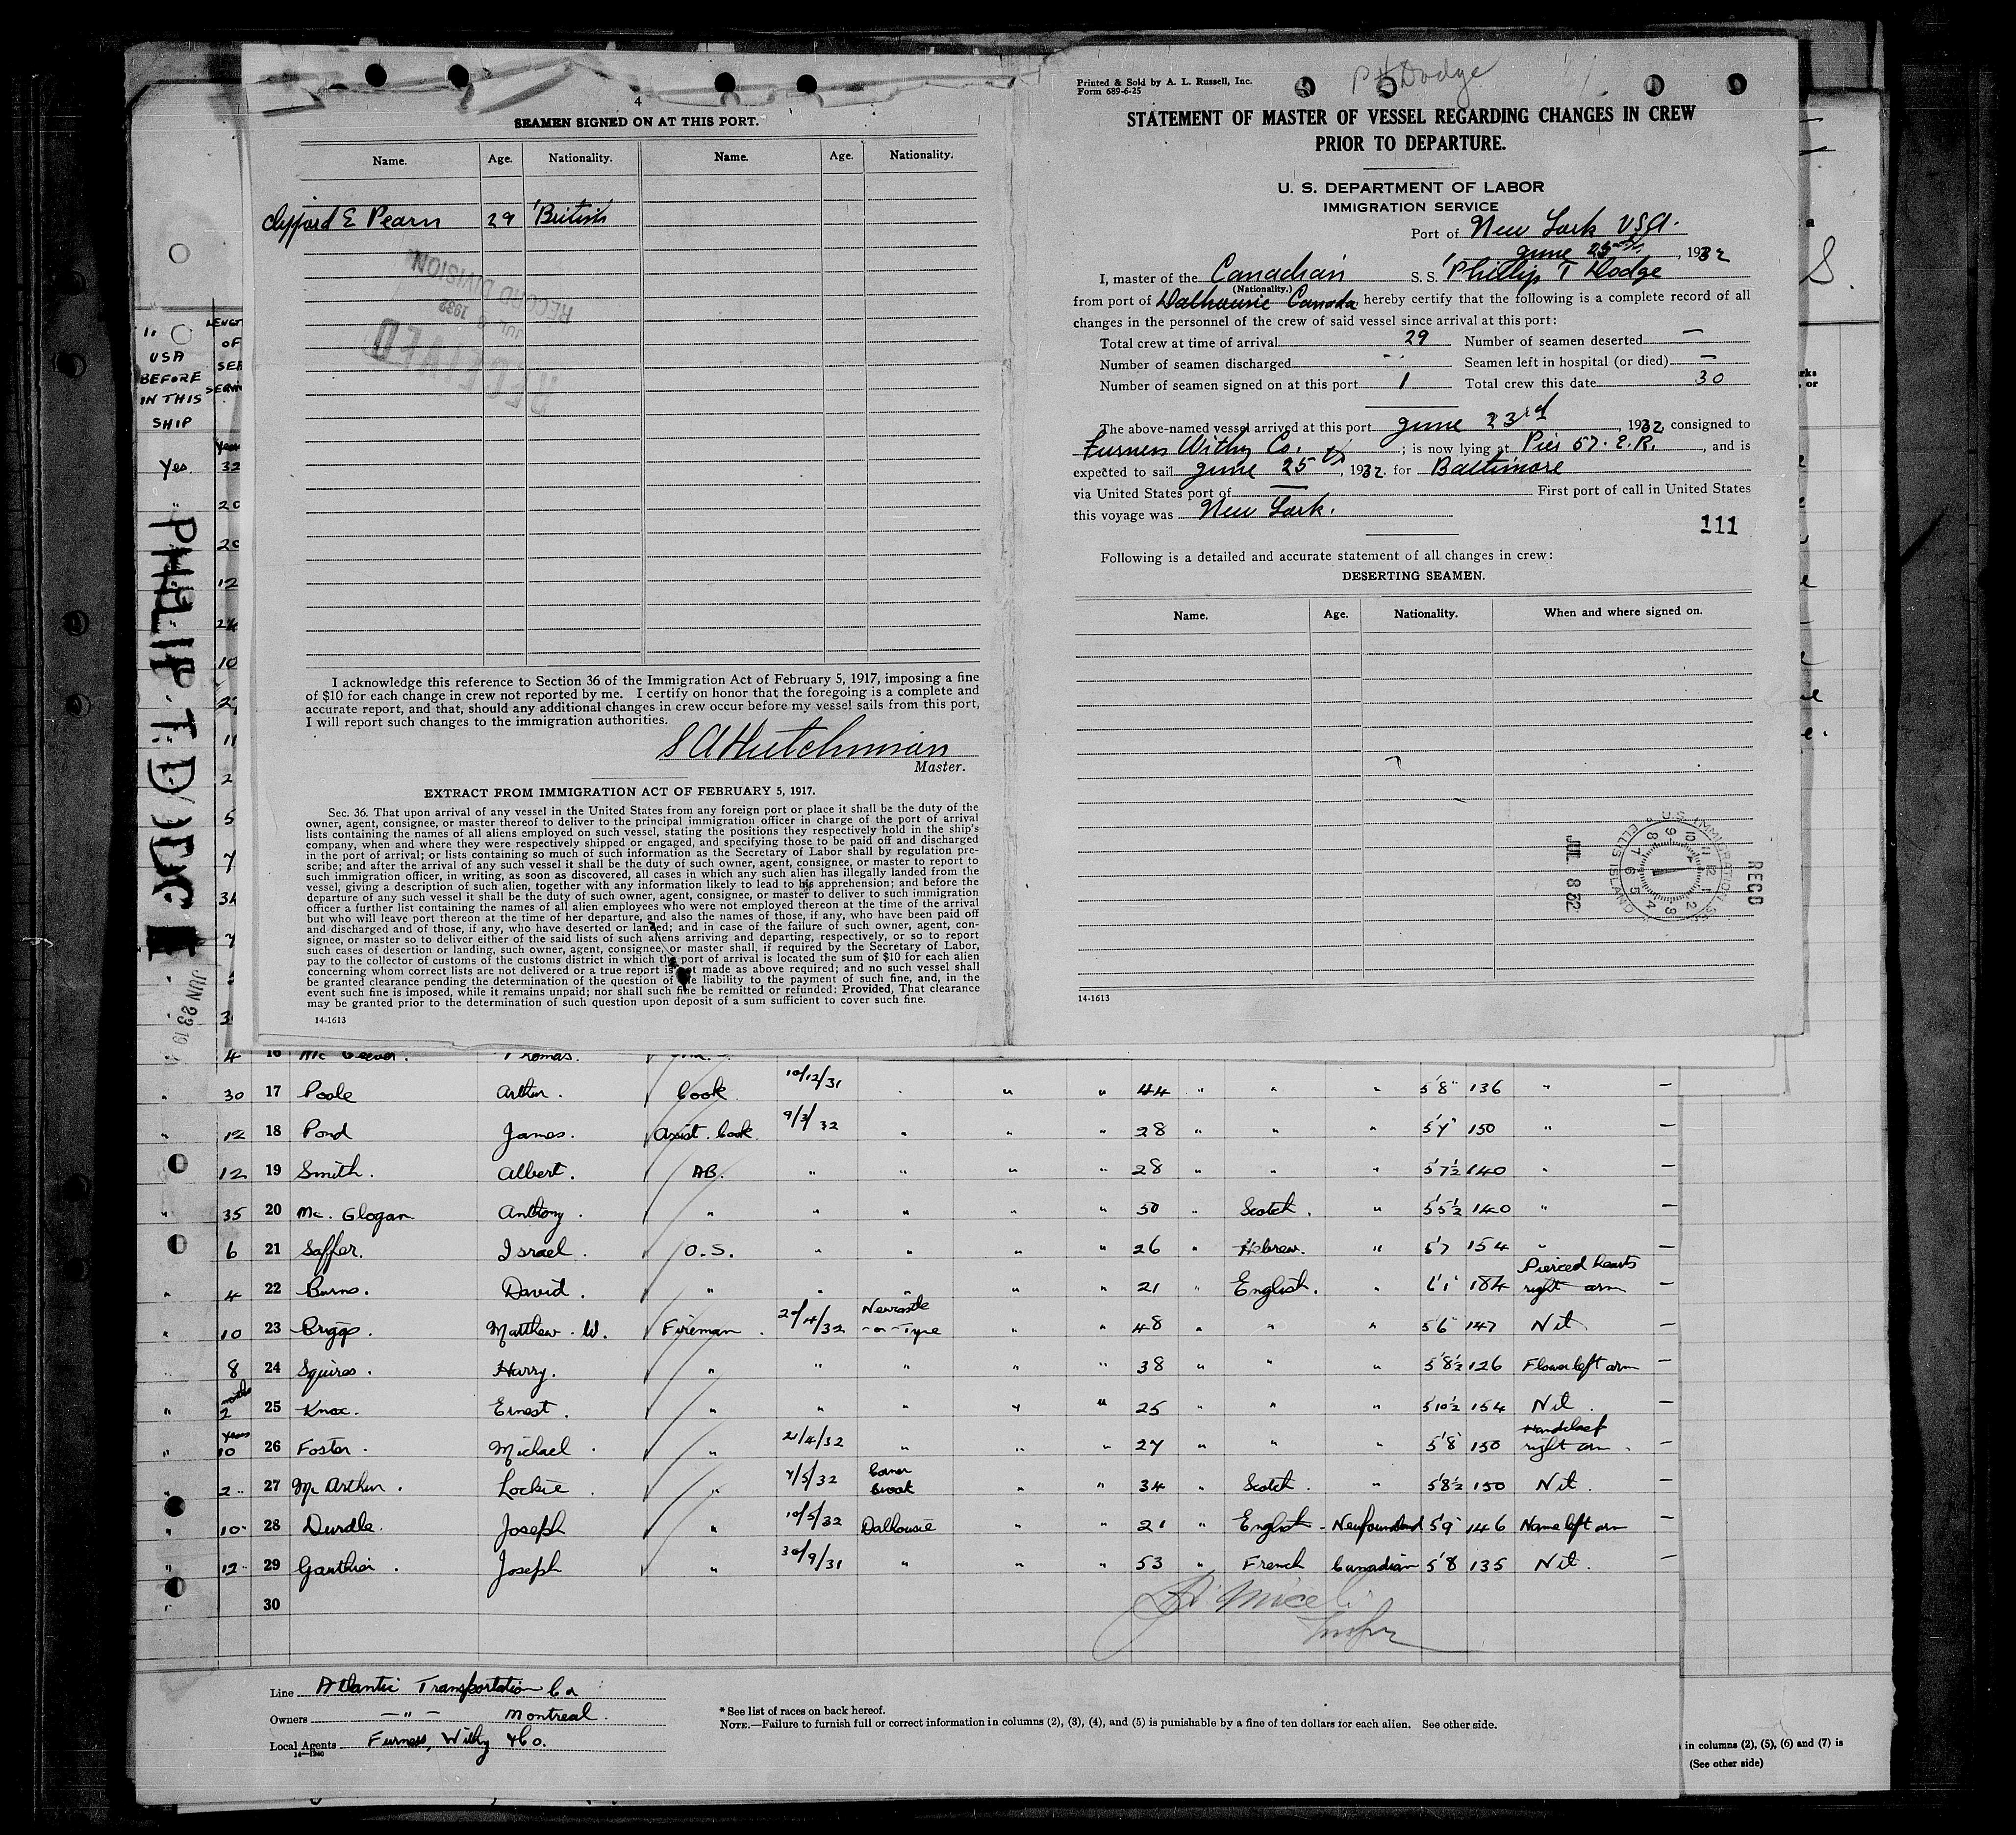 4
SEAMEN SIGNED ON AT THIS PORT.
Name. Age. Nationality. Name. Age. Nationality.
Clifford E Pearn 29 British
RECEIVED
JUL 8 1932
RECORD DIVISION
I acknowledge this reference to Section 36 of the Immigration Act of February 5, 1917, imposing a fine
of $10 for each change in crew not reported by me. I certify on honor that the foregoing is a complete and
accurate report, and that, should any additional changes in crew occur before my vessel sails from this port,
I will report such changes to the immigration authorities.
S A Hutchinson
Master.
EXTRACT FROM IMMIGRATION ACT OF FEBRUARY 5, 1917.
Sec. 36. That upon arrival of any vessel in the United States from any foreign port or place it shall be the duty of the
owner, agent, consignee, or master thereof to deliver to the principal immigration officer in charge of the port of arrival
lists containing the names of all aliens employed on such vessel, stating the positions they respectively hold in the ship's
company, when and where they were respectively shipped or engaged, and specifying those to be paid off and discharged
in the port of arrival; or lists containing so much of such information as the Secretary of Labor shall by regulation pre-
scribe; and after the arrival of any such vessel it shall be the duty of such owner, agent, consignee, or master to report to
such immigration officer, in writing, as soon as discovered, all cases in which any such alien has illegally landed from the
vessel, giving a description of such alien, together with any information likely to lead to his apprehension; and before the
departure of any such vessel it shall be the duty of such owner, agent, consignee, or master to deliver to such immigration
officer a further list containing the names of all alien employees who were not employed thereon at the time of the arrival
but who will leave port thereon at the time of her departure, and also the names of those, if any, who have been paid off
and discharged and of those, if any, who have deserted or landed; and in case of the failure of such owner, agent, con-
signee, or master so to deliver either of the said lists of such aliens arriving and departing, respectively, or so to report
such cases of desertion or landing, such owner, agent, consignee, or master shall, if required by the Secretary of Labor,
pay to the collector of customs of the customs district in which the port of arrival is located the sum of $10 for each alien
concerning whom correct lists are not delivered or a true report is not made as above required; and no such vessel shall
be granted clearance pending the determination of the question of the liability to the payment of such fine, and, in the
event such fine is imposed, while it remains unpaid; nor shall such fine be remitted or refunded: Provided, That clearance
may be granted prior to the determination of such question upon deposit of a sum sufficient to cover such fine.
14-1613
Printed & Sold by A. L. Russell, Inc.
Form 689-6-25
P H Dodge
STATEMENT OF MASTER OF VESSEL REGARDING CHANGES IN CREW
PRIOR TO DEPARTURE.
U. S. DEPARTMENT OF LABOR
IMMIGRATION SERVICE
Port of New York USA.
June 25th, 1932
I, master of the Canadian S. S. Phillip T Dodge
(Nationality.)
from port of Dalhousie Canada, hereby certify that the following is a complete record of all
changes in the personnel of the crew of said vessel since arrival at this port:
Total crew at time of arrival 29 Number of seamen deserted —
Number of seamen discharged - Seamen left in hospital (or died) —
Number of seamen signed on at this port 1 Total crew this date 30
The above-named vessel arrived at this port June 23rd, 1932, consigned to
Furness Withy Co. ; is now lying at Pier 57. E.R., and is
expected to sail June 25th, 1932 for Baltimore
via United States port of — First port of call in United States
this voyage was New York.
111
Following is a detailed and accurate statement of all changes in crew:
DESERTING SEAMEN.
Name. Age. Nationality. When and where signed on.
REC'D
U.S. IMMIGRATION
ELLIS ISLAND
JUL 8 32
14-1613
USA
BEFORE
IN THIS
SHIP
Yes.
PHILIP T. DODGE
JUN 23 19
17 Poole Arthur. Cook 10/12/31 " " " 44 " " " 5'8" 136 " —
30
18 Pond James. Assist. Cook 9/3/32 " " " 28 " " " 5'7" 150 " —
12
19 Smith. Albert. AB. " " " " 28 " " " 5'7½ 140 " —
12
20 Mc. Glogan Anthony. " " " " " 50 " Scotch. " 5'5½ 140 " —
35
21 Saffer. Israel. O.S. " " " " 26 " Hebrew. " 5'7 154 " —
6
22 Burns. David. " " " " " 21 " English. " 6'1" 184 Pierced hearts right arm —
4
23 Briggs. Matthew. W. Fireman. 20/4/32 Newcastle -on-Tyne " " 48 " " " 5'6" 147 Nil. —
10
24 Squires. Harry. " " " " " 38 " " " 5'8½ 126 Flower left arm —
8
25 Knox. Ernest. " " " " " 25 " " " 5'10½ 154 Nil. —
months 2
26 Foster. Michael. " 21/4/32 " " " 27 " " " 5'8" 150 Handclasp right arm. —
years 10
27 McArthur. Lockie. " 7/5/32 Corner Brook " " 34 " Scotch. " 5'8½ 150 Nil. —
2
28 Durdle. Joseph " 10/5/32 Dalhousie " " 21 " English - Newfoundland 5'9" 146 Name left arm —
10
29 Gauthier. Joseph " 30/9/31 " " " 53 " French Canadian 5'8 135 Nil. —
12
30
Line Atlantic Transportation Co
Owners — " — Montreal.
Local Agents Furness, Withy & Co.
14—1240
* See list of races on back hereof.
NOTE.—Failure to furnish full or correct information in columns (2), (3), (4), and (5) is punishable by a fine of ten dollars for each alien. See other side.
in columns (2), (5), (6) and (7) is
(See other side)